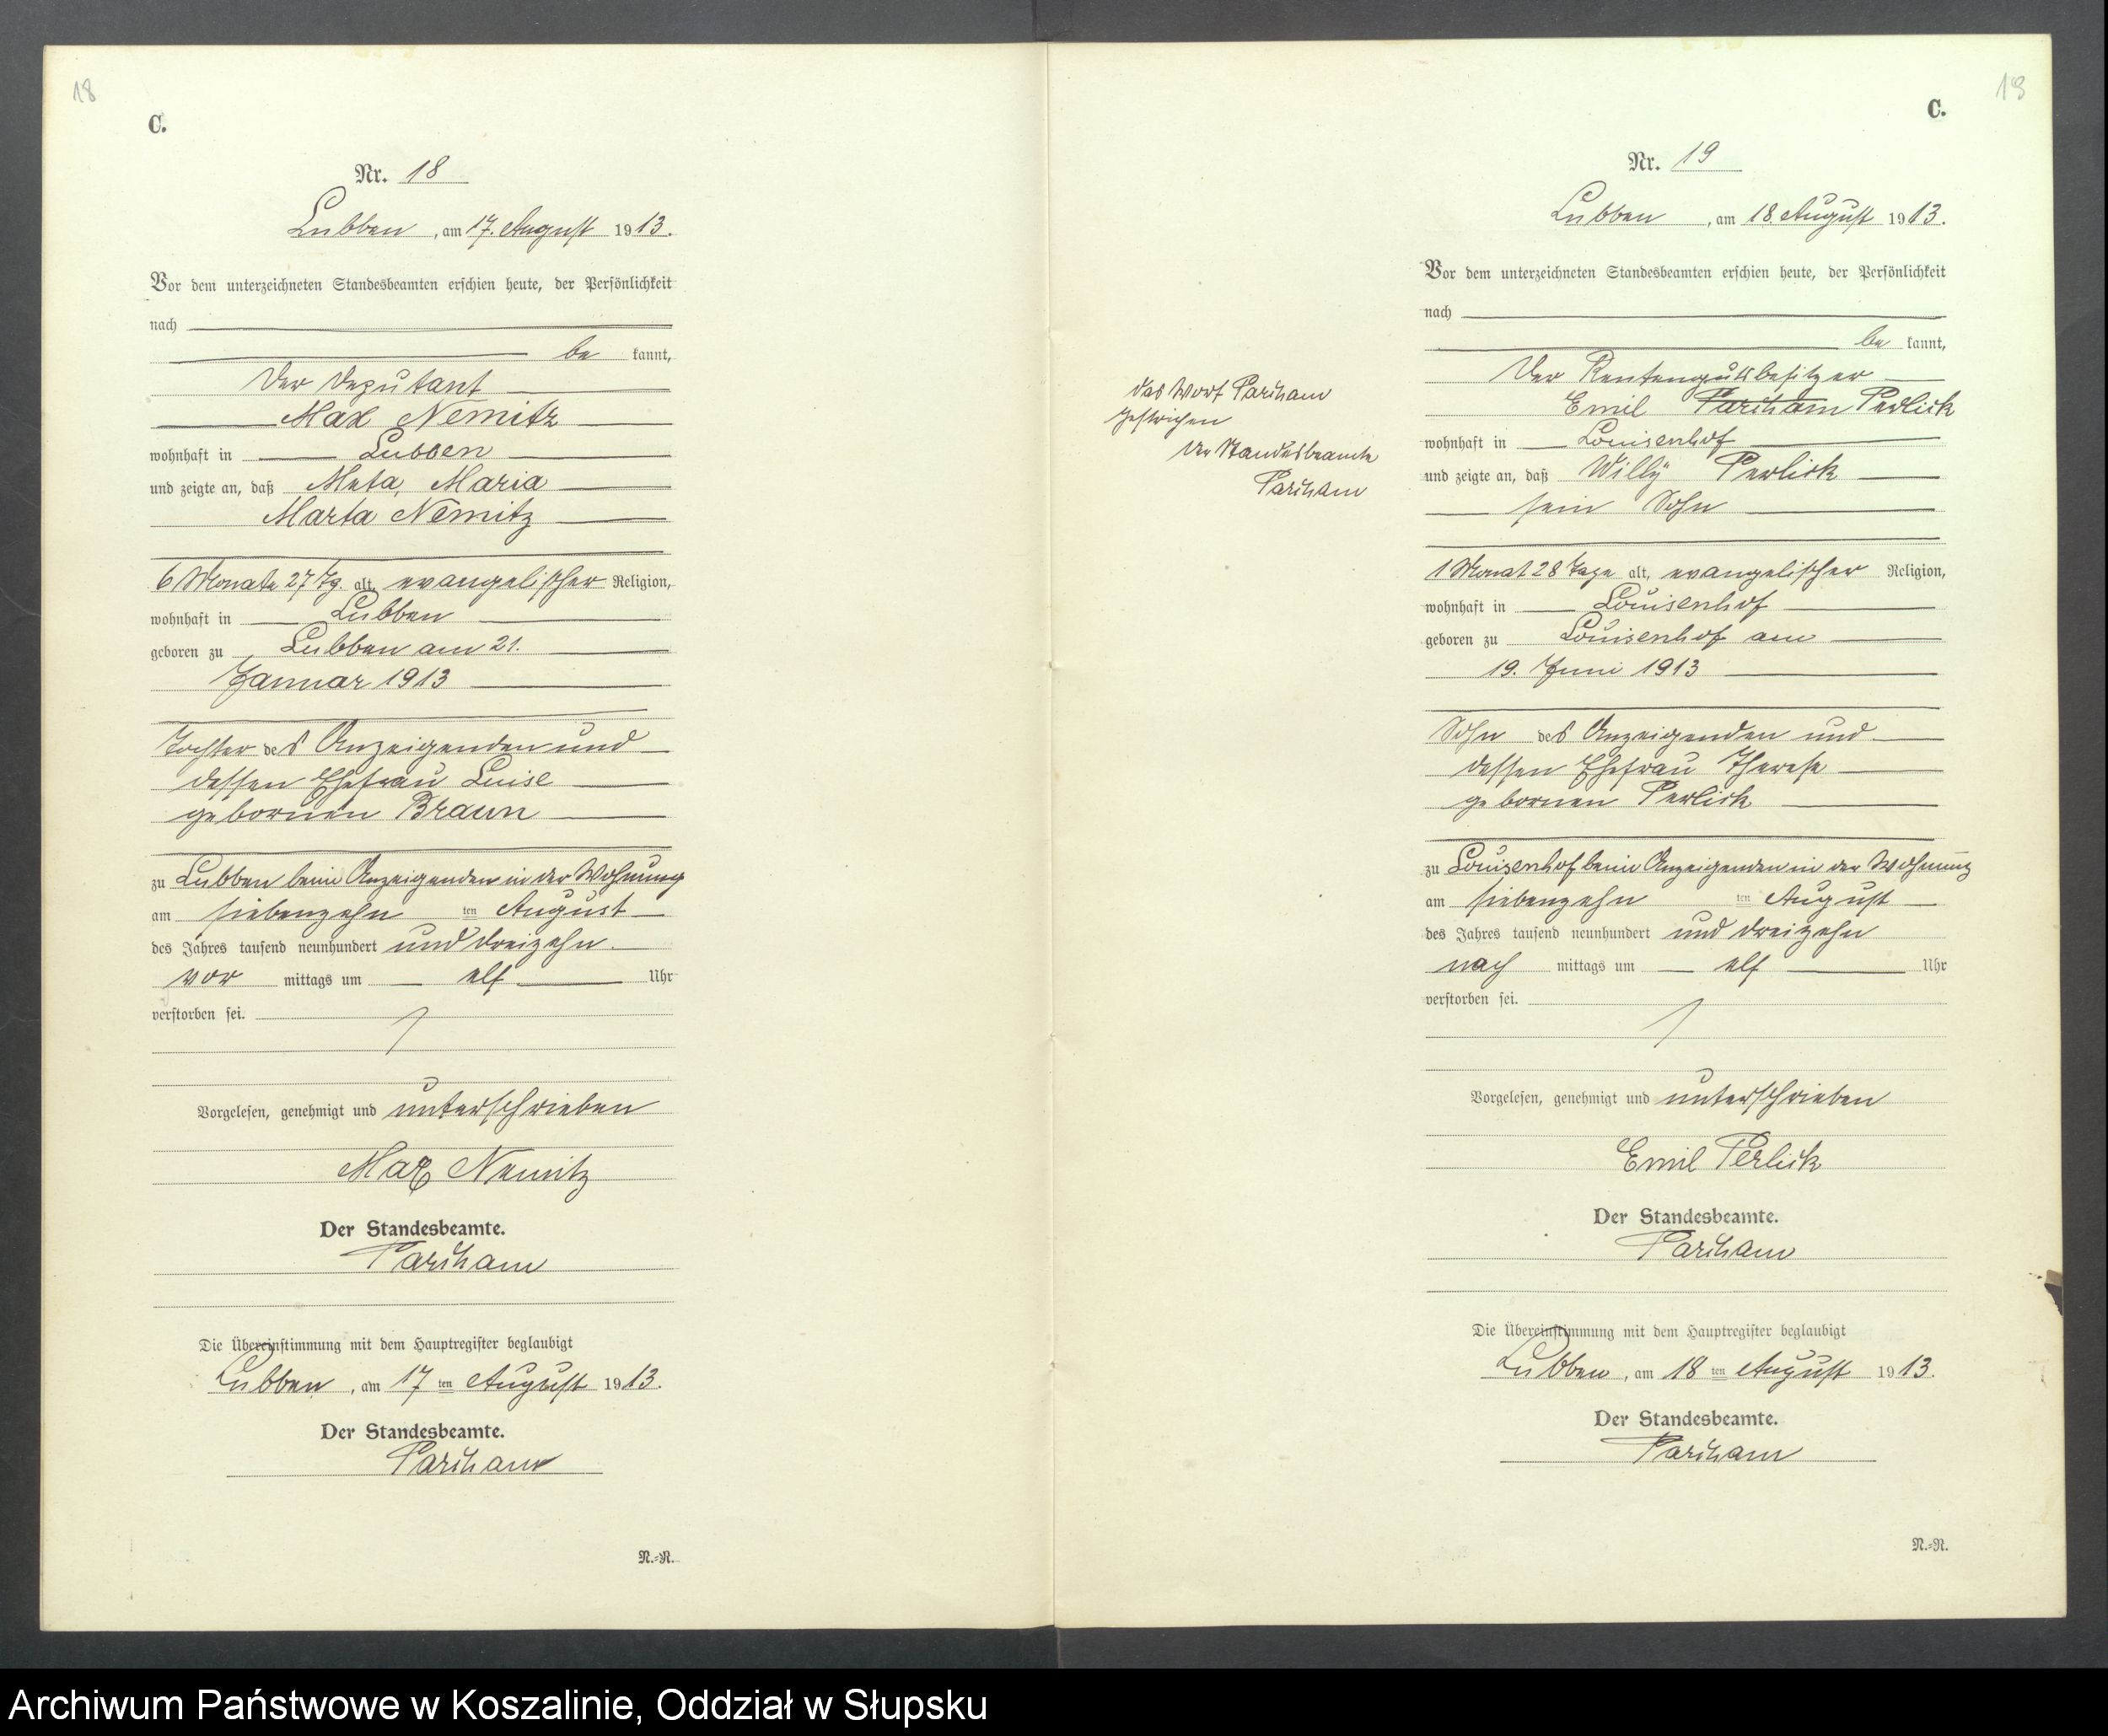 18
C.
Nr. 18
Lubben, am 17. August 1913.
Vor dem unterzeichneten Standesbeamten erschien heute, der Persönlichkeit
nach
be kannt,
der Deputant
Max Nemitz
wohnhaft in Lubben
und zeigte an, daß Meta, Maria
Marta Nemitz
6 Monate 27 Tg. alt, evangelischer Religion,
wohnhaft in Lubben
geboren zu Lubben am 21.
Januar 1913
Tochter des Anzeigenden und
dessen Ehefrau Luise
gebornen Braun
zu Lubben beim Anzeigenden in der Wohnung
am siebenzehn ten August
des Jahres tausend neunhundert und dreizehn.
vor mittags um elf Uhr
verstorben sei.
Vorgelesen, genehmigt und unterschrieben
Max Nemitz
Der Standesbeamte.
Parcham
Die Übereinstimmung mit dem Hauptregister beglaubigt
Lubben, am 17 ten August 1913.
Der Standesbeamte.
Parcham
N.=N.
C.
Nr. 19
Lubben, am 18. August 1913.
Vor dem unterzeichneten Standesbeamten erschien heute, der Persönlichkeit
nach
be kannt,
Der Rentengutsbesitzer
Emil Parcham Perlick
das Wort Parcham
gestrichen
der Standesbeamte
Parcham
wohnhaft in Louisenhof
und zeigte an, daß Willy Perlick
sein Sohn
1 Monat 28 Tage alt, evangelischer Religion,
wohnhaft in Louisenhof
geboren zu Louisenhof am
19. Juni 1913
Sohn des Anzeigenden und
dessen Ehefrau Therese
gebornen Perlick
zu Louisenhof beim Anzeigenden in der Wohnung
am siebenzehn ten August
des Jahres tausend neunhundert und dreizehn
nach mittags um elf Uhr
verstorben sei.
Vorgelesen, genehmigt und unterschrieben
Emil Perlick
Der Standesbeamte.
Parcham
Die Übereinstimmung mit dem Hauptregister beglaubigt
Lubben, am 18 ten August 1913.
Der Standesbeamte.
Parcham
N.=N.
Archiwum Państwowe w Koszalinie, Oddział w Słupsku